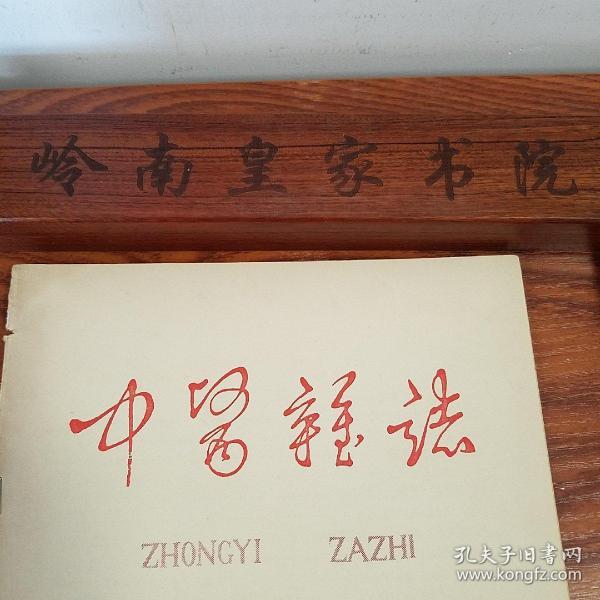 岭南皇家书院
中醫雜誌
ZHONGYI ZAZHI
孔夫子旧书网
www.kongfz.com